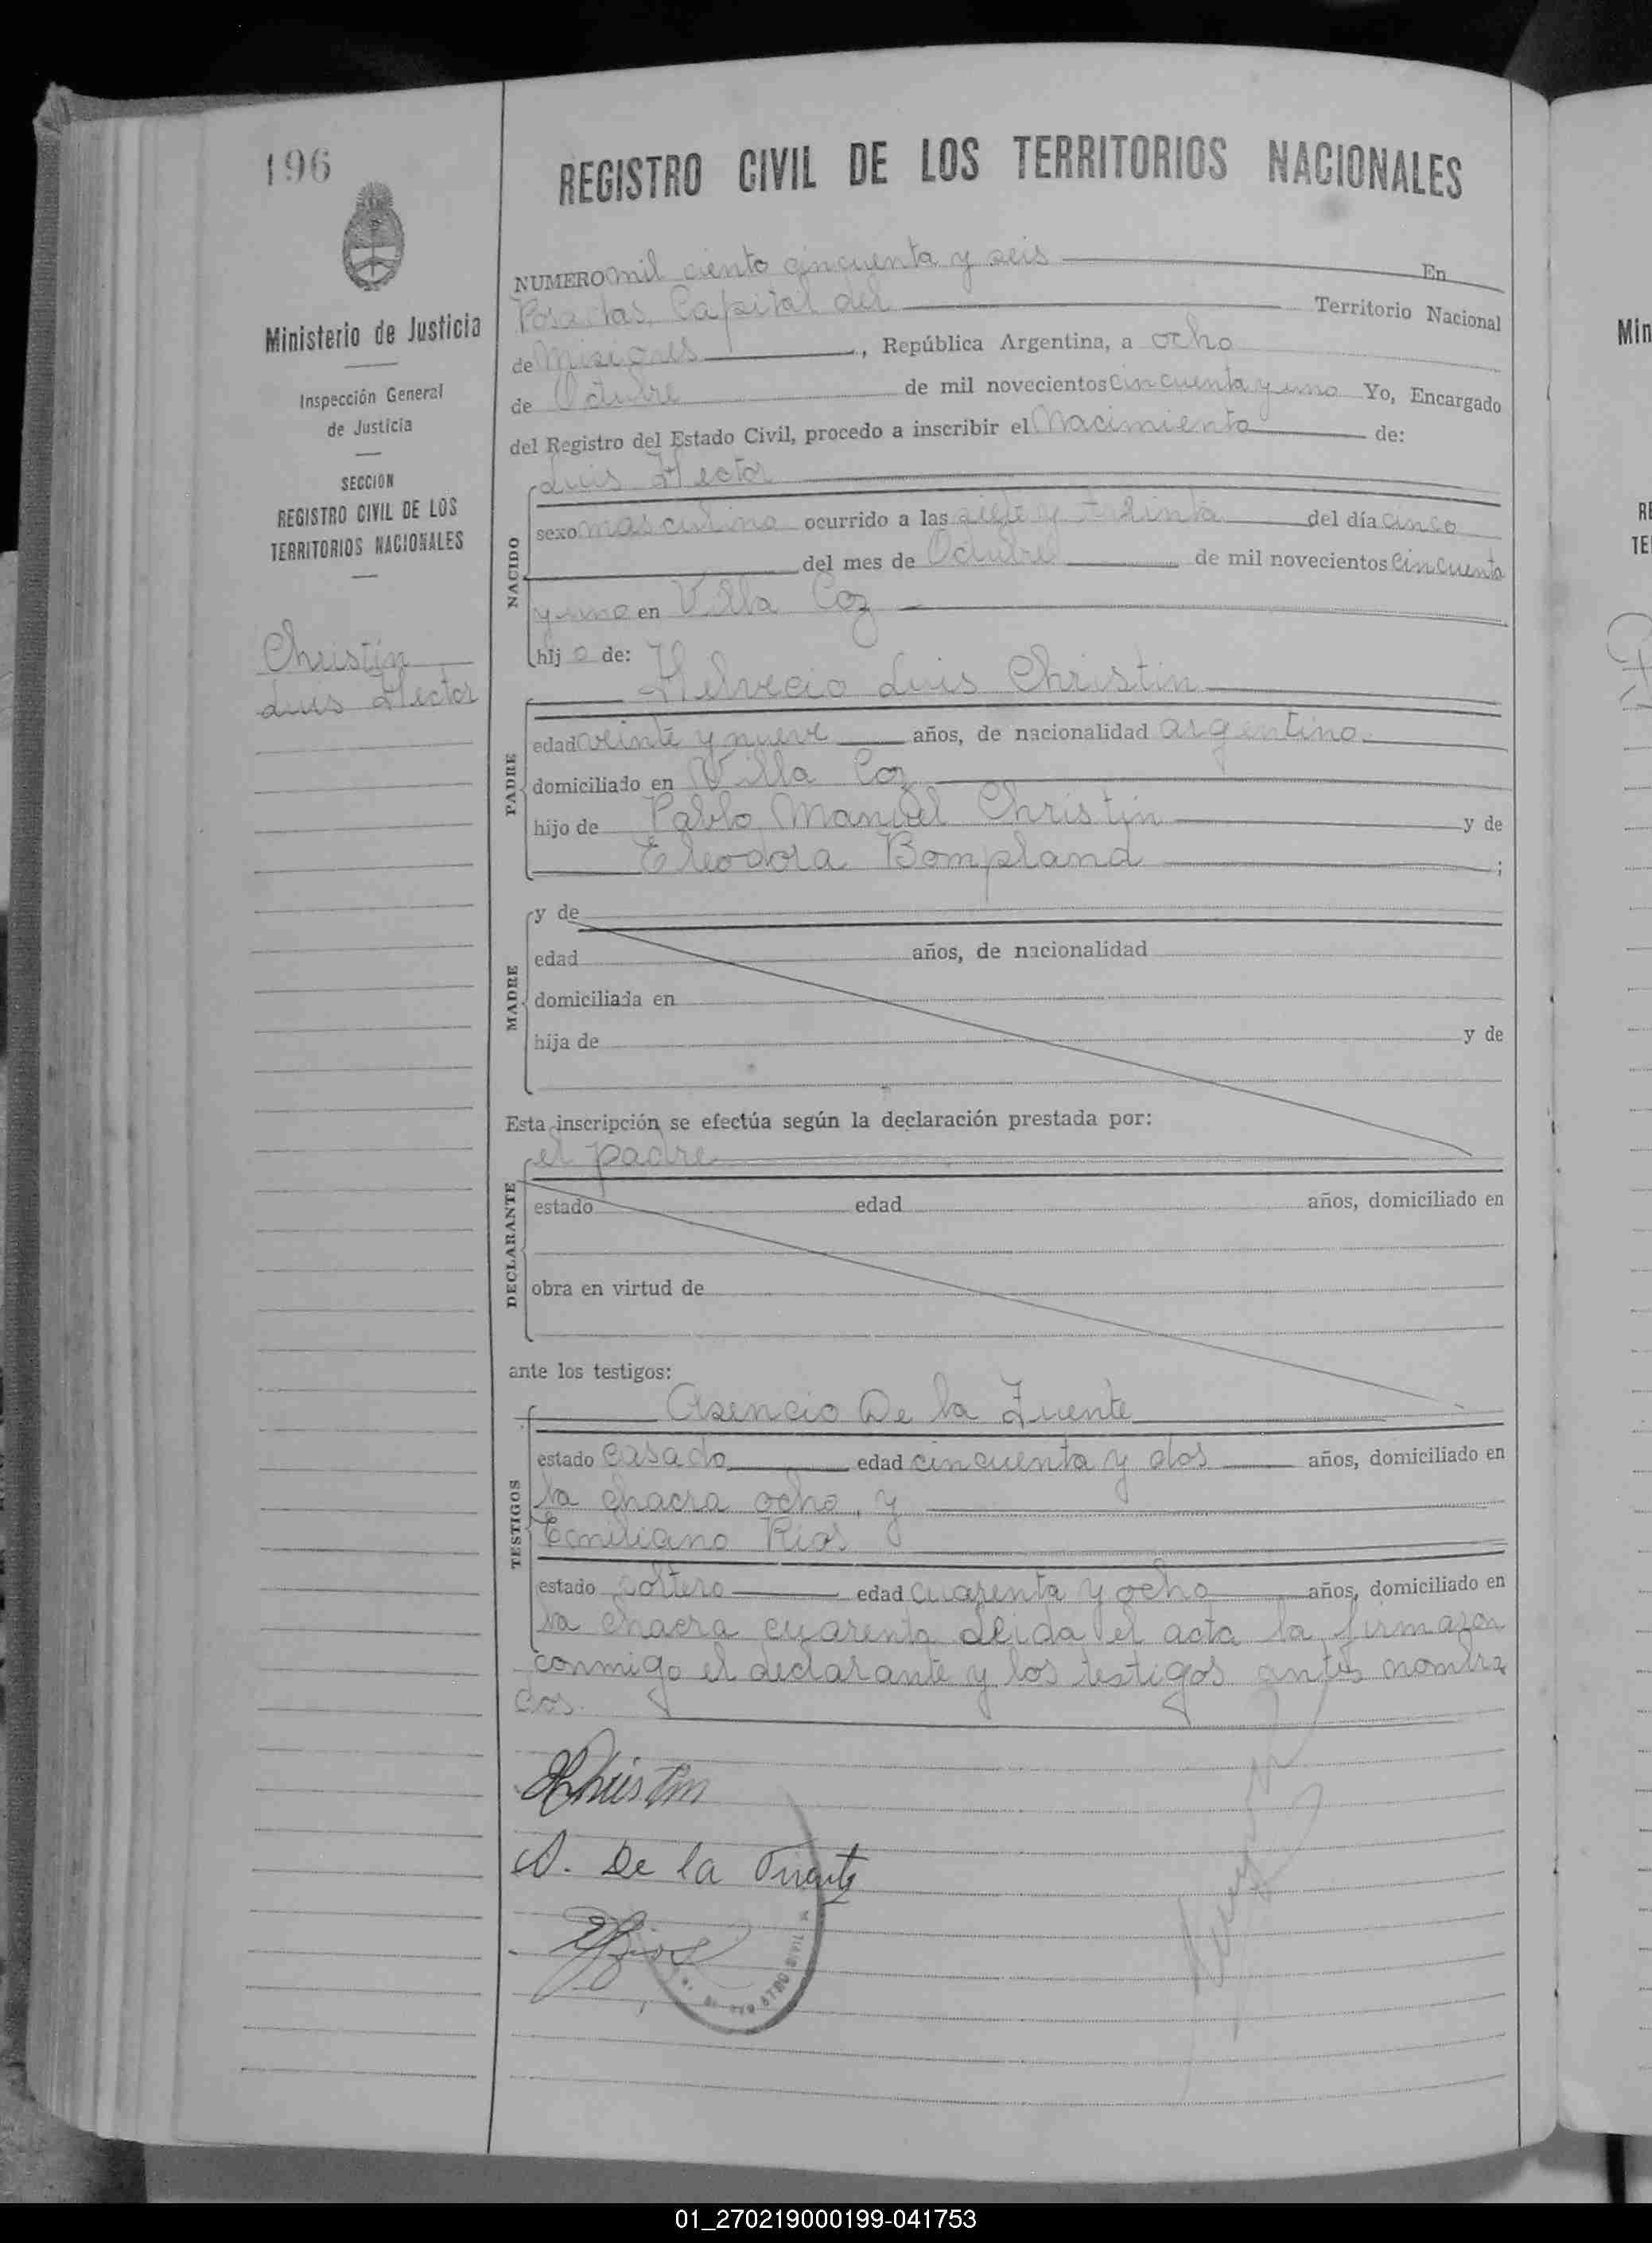 196
Ministerio de Justicia
Inspección General
de Justicia
SECCION
REGISTRO CIVIL DE LOS
TERRITORIOS NACIONALES
Christin
Luis Hector
REGISTRO CIVIL DE LOS TERRITORIOS NACIONALES
NUMERO mil ciento cincuenta y seis En
Posadas, Capital del Territorio Nacional
de Misiones, República Argentina, a ocho
de Octubre de mil novecientos cincuenta y uno Yo, Encargado
del Registro del Estado Civil, procedo a inscribir el Nacimiento de:
NACIDO
Luis Hector
sexo masculino ocurrido a las siete y treinta del día cinco
del mes de Octubre de mil novecientos cincuenta
y uno en Villa Coz
hijo de:
PADRE
Helvecio Luis Christin
edad veinte y nueve años, de nacionalidad argentino
domiciliado en Villa Coz
hijo de Pablo Manuel Christin y de
Eleodora Bompland ;
MADRE
y de
edad años, de nacionalidad
domiciliada en
hija de y de
Esta inscripción se efectúa según la declaración prestada por:
DECLARANTE
el padre
estado edad años, domiciliado en
obra en virtud de
ante los testigos:
TESTIGOS
Asencio De la Fuente
estado casado edad cincuenta y dos años, domiciliado en
la chacra ocho, y
Emiliano Rios
estado soltero edad cuarenta y ocho años, domiciliado en
la chacra cuarenta leida el acta la firmaron
conmigo el declarante y los testigos antes nombra
dos.
HChristin
A. De la Fuente
ERios
Min
01_270219000199-041753